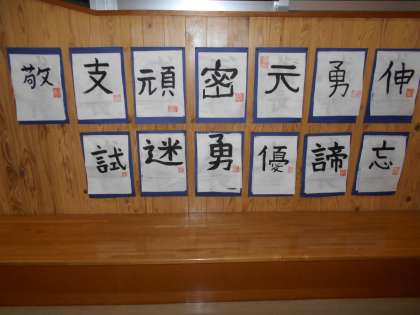 敬支頑密元勇伸
試迷勇優諦忘